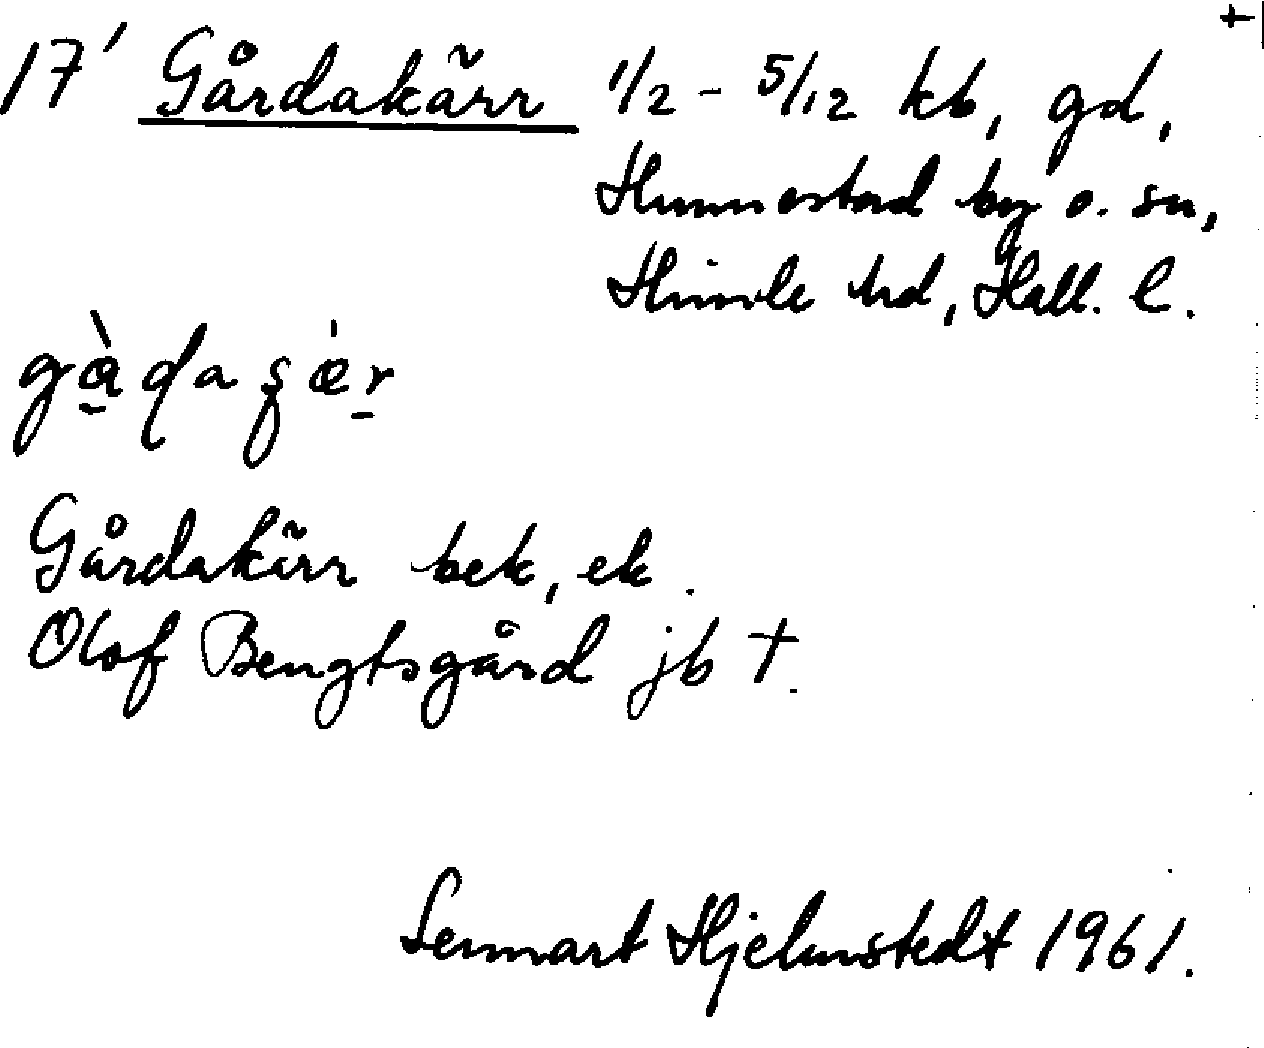 +
17' Gårdakärr 1/2 - 5/12 kb, gd,
Hunnestad by o. sn,
Himle hd, Hall. l.
Gårdakärr bek, ek.
Olof Bengtsgård jb †.
Lennart Hjelmstedt 1961.